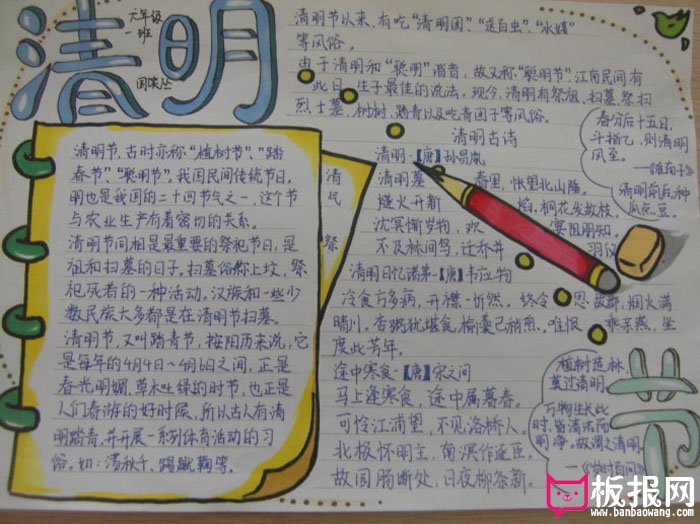 清明
六年级
一班
清明节以来,有吃“清明团”、
等风俗。
由于清明和“聪明”谐音,故又称“聪明节”,江南民间有
此日 生子最佳的说法。现今,清明有祭祖、扫墓、祭扫
烈士墓、树树、踏青以及吃青团子等风俗。
清明古诗
春分后十五日,
斗指乙,则清明
风至。
清明前后种
瓜点豆。
清明·【唐】孙昌胤
清明暮 春里,怅望北山陲。
燧火开新 焰,桐花发故枝。
沈冥惭岁物,欢 宴阻朋知。
不及林间鸟,迁乔并 羽仪
清明日忆诸弟·【唐】韦应物
冷食方多病,开襟一忻然。终令 思故郡,烟火满
晴川。杏粥犹堪食,榆羹已稍煎。唯恨 乖亲燕,坐
度此芳年。
途中寒食·【唐】宋之问
马上逢寒食,途中属暮春。
可怜江浦望,不见洛桥人。
北极怀明主,南溟作逐臣。
故园肠断处,日夜柳条新。
清明节,古时亦称“植树节”、“踏
春节”、“聪明节”。我国民间传统节日。
明也是我国的二十四节气之一,这个节
与农业生产有着密切的关系。
清明节同祖是最重要的祭祀节日,是
祖和扫墓的日子。扫墓俗称上坟,祭
祀死者的一种活动。汉族和一些少
数民族大多都是在清明节扫墓。
清明节,又叫踏青节,按阳历来说,它
是每年的4月4日~4月6日之间,正是
春光明媚,草木吐绿的时节,也正是
人们春游的好时候,所以古人有清
明踏青,并开展一系列体育活动的习
俗。如:荡秋千、蹴鞠等。
清
气
祭
植树造林,
莫过清明。
万物生长此
时,皆清洁而
明净。故谓之清明。
节
板报网
www.banbaowang.com